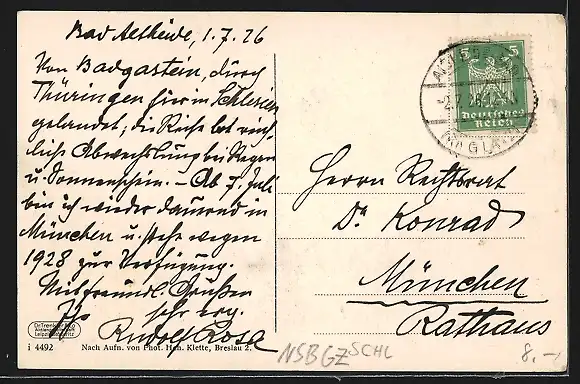 Bad Altheide, 1.7.26
Von Badgastein, durch
Thüringen hier in Schlesien
gelandet; die Reise bot reich-
liche Abwechslung bei Regen
u. Sonnenschein. – Ab 7. Juli
bin ich wieder dauernd in
München u. stehe wegen
1928 zur Verfügung.
Mit freundl. Grüßen
Ihr sehr erg.
Rudolf Rosa
Herrn Rechtsrat
Dr. Konrad
München
Rathaus
5 5
Deutsches
Reich
-2.7.26
GLATZ
Dr. Trenkler &Co
Leipzig
i 4492
Nach Aufn. von Phot. Han. Klette, Breslau 2.
NSBGZ SCHL
8.–